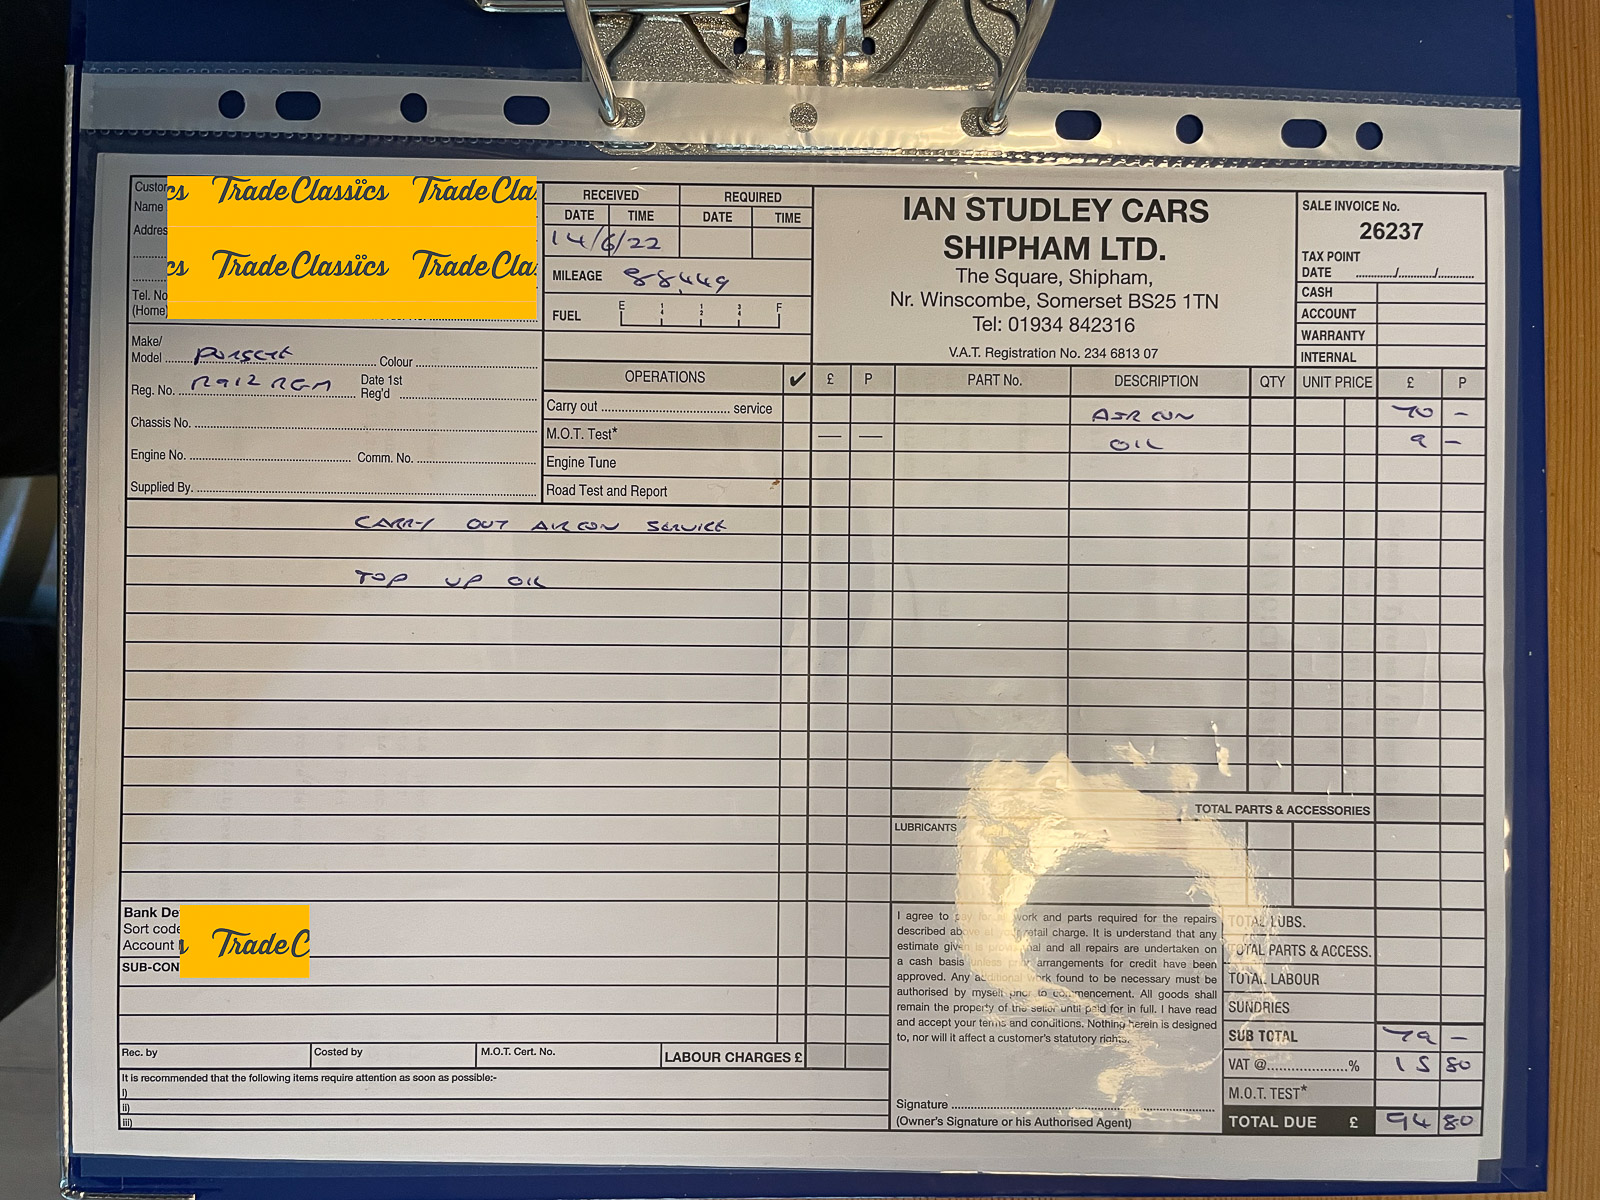 Custo
Name
Addres
Tel. No
(Home)
cs TradeClassics TradeCla
cs TradeClassics TradeCla
RECEIVED REQUIRED
DATE TIME DATE TIME
14/6/22
MILEAGE 88,449
FUEL E 1/4 1/2 3/4 F
IAN STUDLEY CARS
SHIPHAM LTD.
The Square, Shipham,
Nr. Winscombe, Somerset BS25 1TN
Tel: 01934 842316
V.A.T. Registration No. 234 6813 07
SALE INVOICE No.
26237
TAX POINT
DATE ........../........../..........
CASH
ACCOUNT
WARRANTY
INTERNAL
Make/
Model PORSCHE Colour
Reg. No. R912 RGM Date 1st
Reg'd
Chassis No.
Engine No. Comm. No.
Supplied By.
OPERATIONS ✔ £ P
Carry out service
M.O.T. Test* — —
Engine Tune
Road Test and Report
PART No. DESCRIPTION QTY UNIT PRICE £ P
AIR CON 70 –
OIL 9 –
CARRY OUT AIRCON SERVICE
TOP UP OIL
TOTAL PARTS & ACCESSORIES
LUBRICANTS
Bank De
Sort code
Account
TradeC
SUB-CON
Rec. by Costed by M.O.T. Cert. No. LABOUR CHARGES £
It is recommended that the following items require attention as soon as possible:-
i)
ii)
iii)
I agree to pay for all work and parts required for the repairs
described above at your retail charge. It is understand that any
estimate given is provisional and all repairs are undertaken on
a cash basis unless prior arrangements for credit have been
approved. Any additional work found to be necessary must be
authorised by myself prior to commencement. All goods shall
remain the property of the seller until paid for in full. I have read
and accept your terms and conditions. Nothing herein is designed
to, nor will it affect a customer's statutory rights.
Signature
(Owner's Signature or his Authorised Agent)
TOTAL LUBS.
TOTAL PARTS & ACCESS.
TOTAL LABOUR
SUNDRIES
SUB TOTAL 79 –
VAT @ % 15 80
M.O.T. TEST*
TOTAL DUE £ 94 80